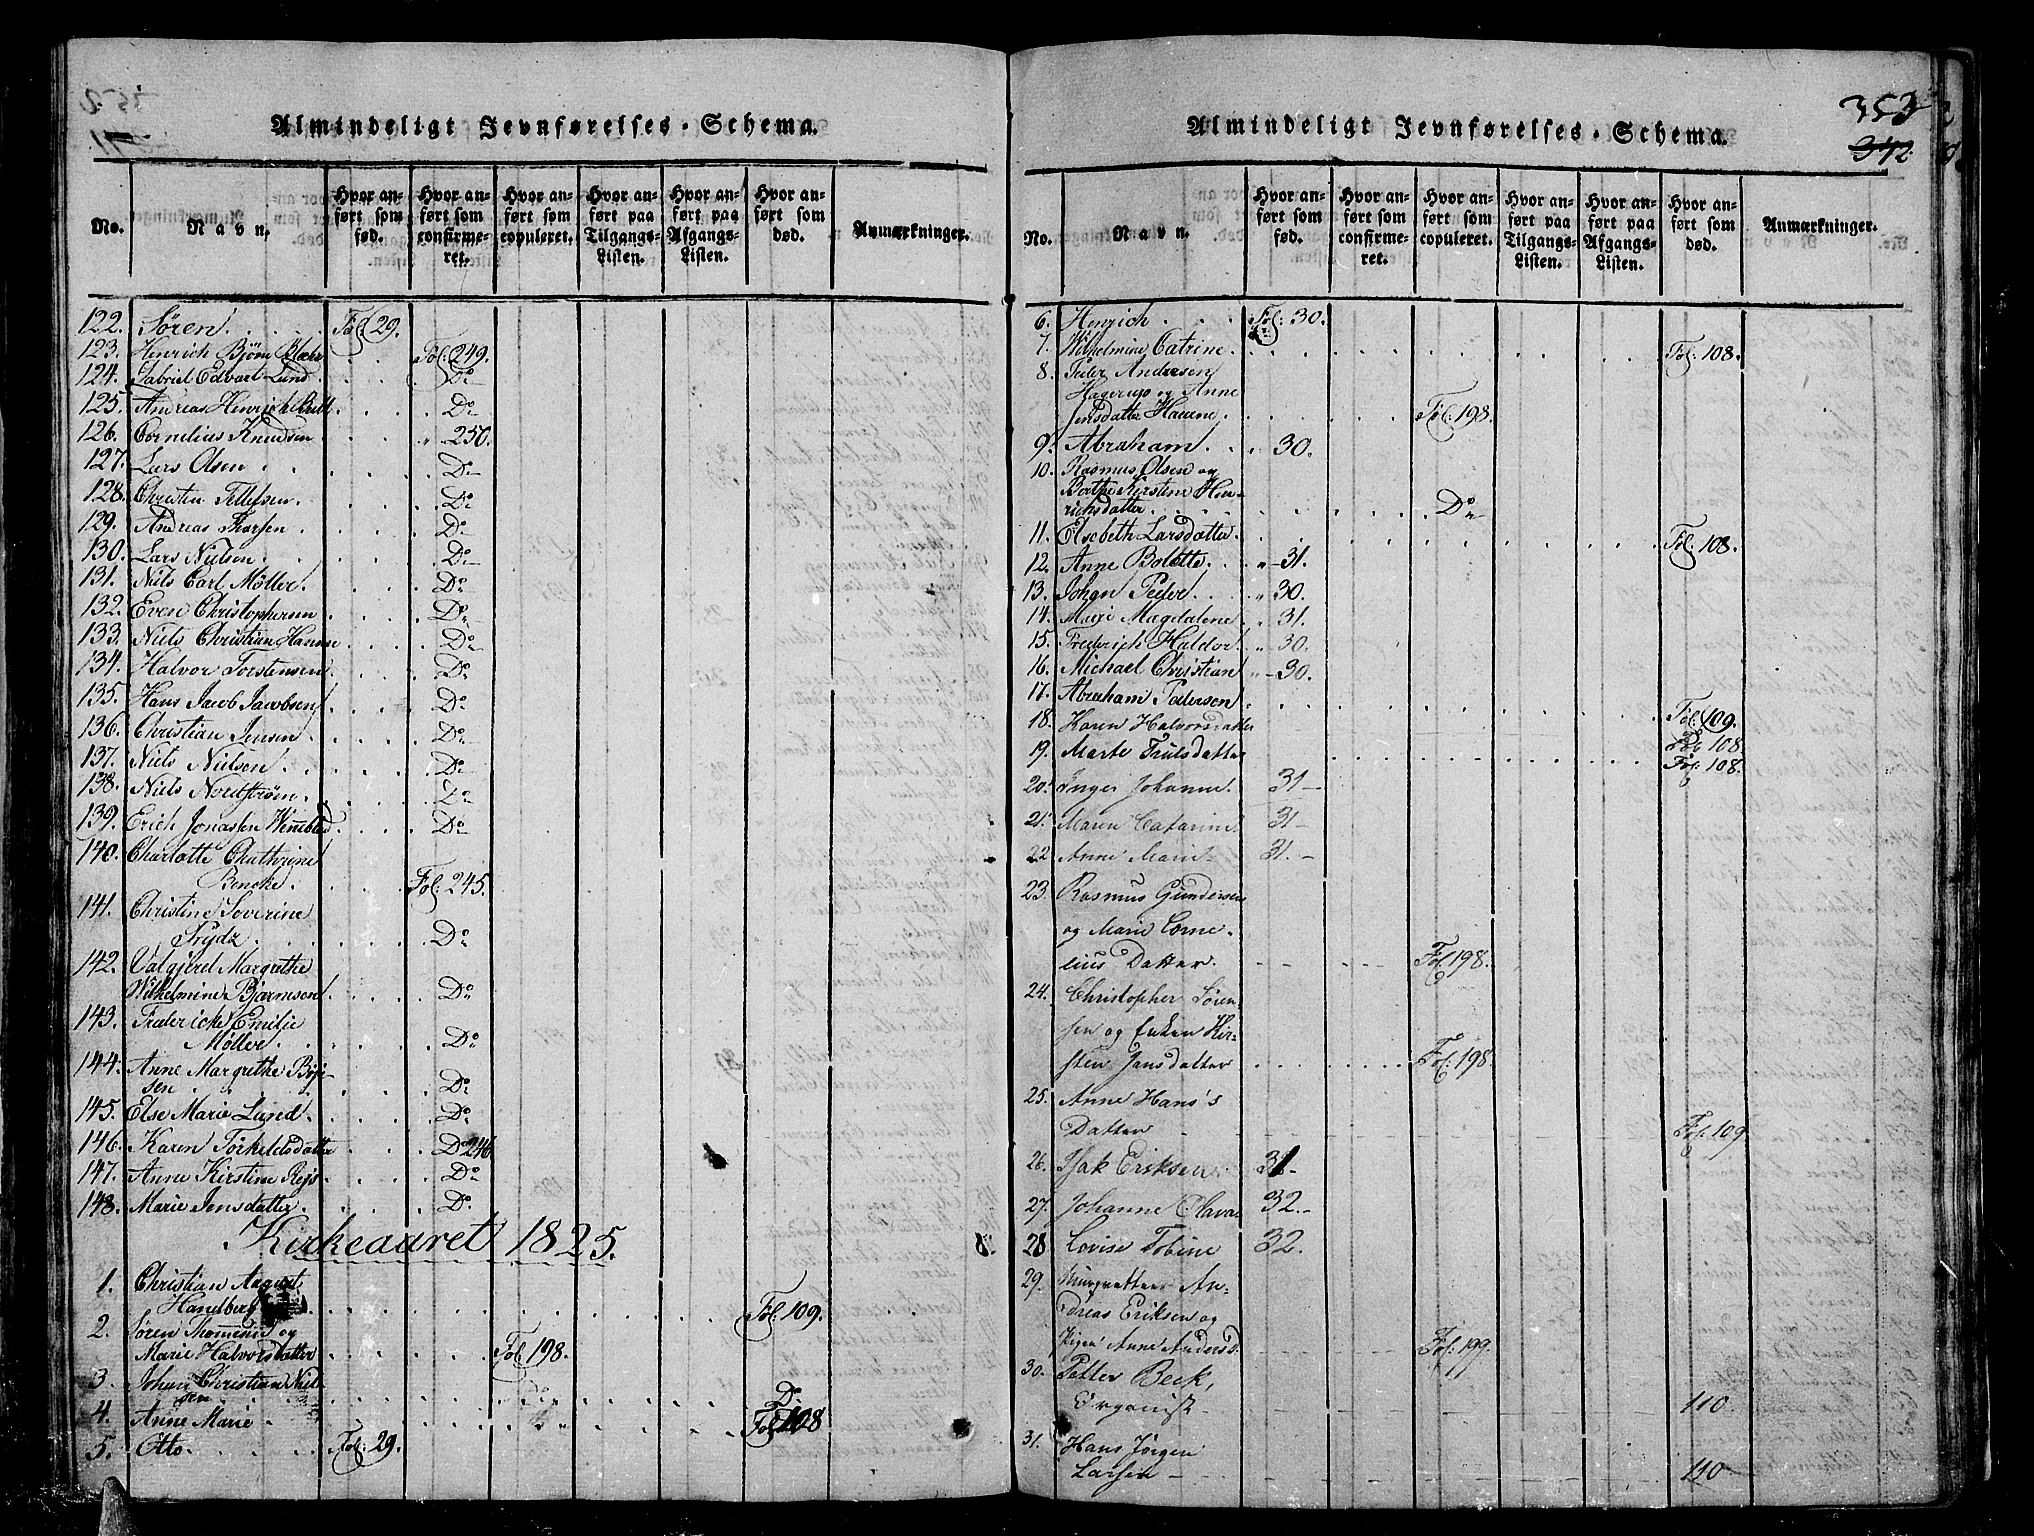 Almindeligt Jevnførelses-Schema.
No. Navn. Hvor anført som fød. Hvor anført som confirmeret. Hvor anført som copuleret. Hvor anført paa Tilgangs-Listen. Hvor anført paa Afgangs-Listen. Hvor anført som død. Anmærkninger.
122. Søren. Fol. 29.
123. Henrich Bjørn Fol: 249.
124. Gabriel Edvart Lund. Do
125. Andreas Henrich Do
126. Cornelius Knudsen " 250.
127. Lars Olsen Do
128. Christen Tellefsen. Do
129. Andreas Do
130. Lars Nielsen Do
131. Niels Carl Møller. Do
132. Even Christophersen Do
133. Niels Christian Do
134. Halvor Torstensen Do
135. Hans Jacob Jacobsen Do
136. Christian Jensen Do
137. Niels Nielsen Do
138. Niels Nordstrøm. Do
139. Erich Jonassen Do
140. Charlotte Chathrine
Fol: 245.
141. Christine Severine
Do
142. Valgjerd Margrethe
Wilhelmine Do
143. Fredericke Emilie
Møller. Do
144. Anne Margrethe
sen Do
145. Else Marie Lund. Do
146. Karen Torkeldsdatter Do 246
147. Anne Kirstine Do
148. Marie Jensdatter. Do
Kirkeaaret 1825.
1. Christian August
Fol: 109.
2. Søren og
Marie Halvorsdatter Fol 198.
3. Johan Christian Niel-
sen Do
4. Anne Marie Fol 108
5. Otto. Fol: 29.
Almindeligt Jevnførelses-Schema.
353
342
No. Navn. Hvor anført som fød. Hvor anført som confirmeret. Hvor anført som copuleret. Hvor anført paa Tilgangs-Listen. Hvor anført paa Afgangs-Listen. Hvor anført som død. Anmærkninger.
6. Henrich Fol: 30.
7. Wilhelmine Catrine. Fol. 108.
8. Peder Andresen
Hagerup og Anne
Jensdatter Fol: 198.
9. Abraham " 30.
10. Rasmus Olsen og
Kirstine Hen-
richsdatter Do
11. Elsebeth Larsdatter. Fol: 108.
12. Anne Bolette. " 31.
13. Johan Peder. " 30.
14. Mari Magdalene " 31.
15. Frederich Haldor. " 30.
16. Michael Christian " 30.
17. Abraham Pedersen
18. Karen Halvorsdatter Fol. 109.
19. Marte Trulsdatter Fol 108
Fol. 108.
20. Inger Johanne. 31
21. Maren Catarine 31
22 Anne Marie 31.
23. Rasmus Gundersen
og Marie Corne-
lius Datter. Fol 198.
24. Christopher Søren-
sen og Enken Kir-
sten Jansdatter Fol. 198.
25. Anne Hans's
Datter Fol. 109
26. Isak Eriksen
27. Johanne Olava 32.
28 Lovise Tobine 32.
29. An-
dreas Eriksen og
Pigen Anne Andersd. Fol: 199.
30. Petter Beck,
Organist 110
31. Hans Jørgen
Larsen 110